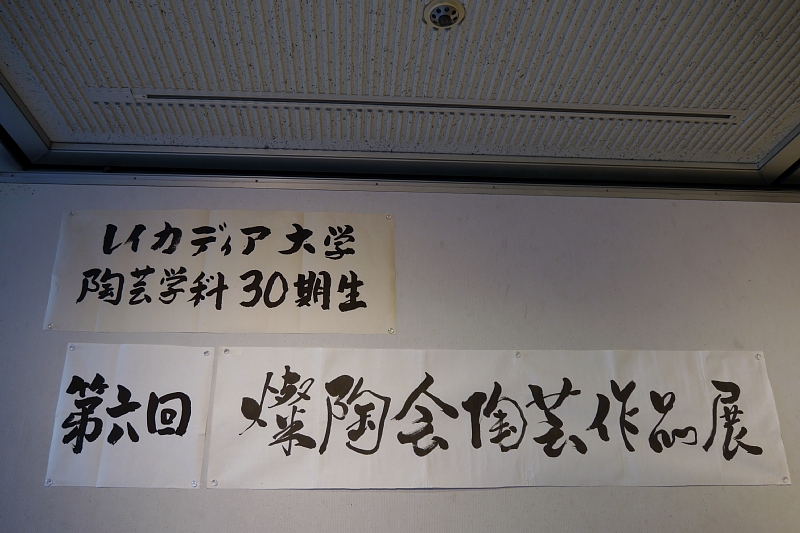 レイカディア大学
陶芸学科30期生
第六回 燦陶会陶芸作品展